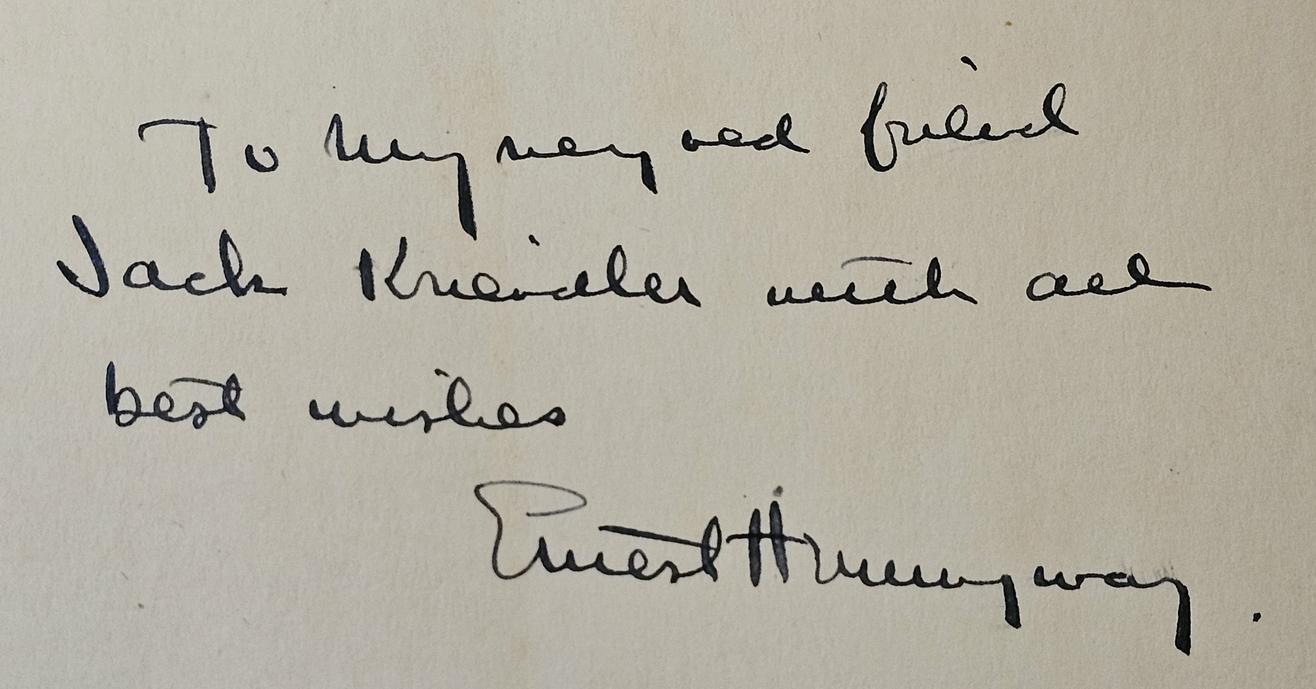 To My very old friend
Jack Kriendler with all
best wishes
Ernest Hemingway.